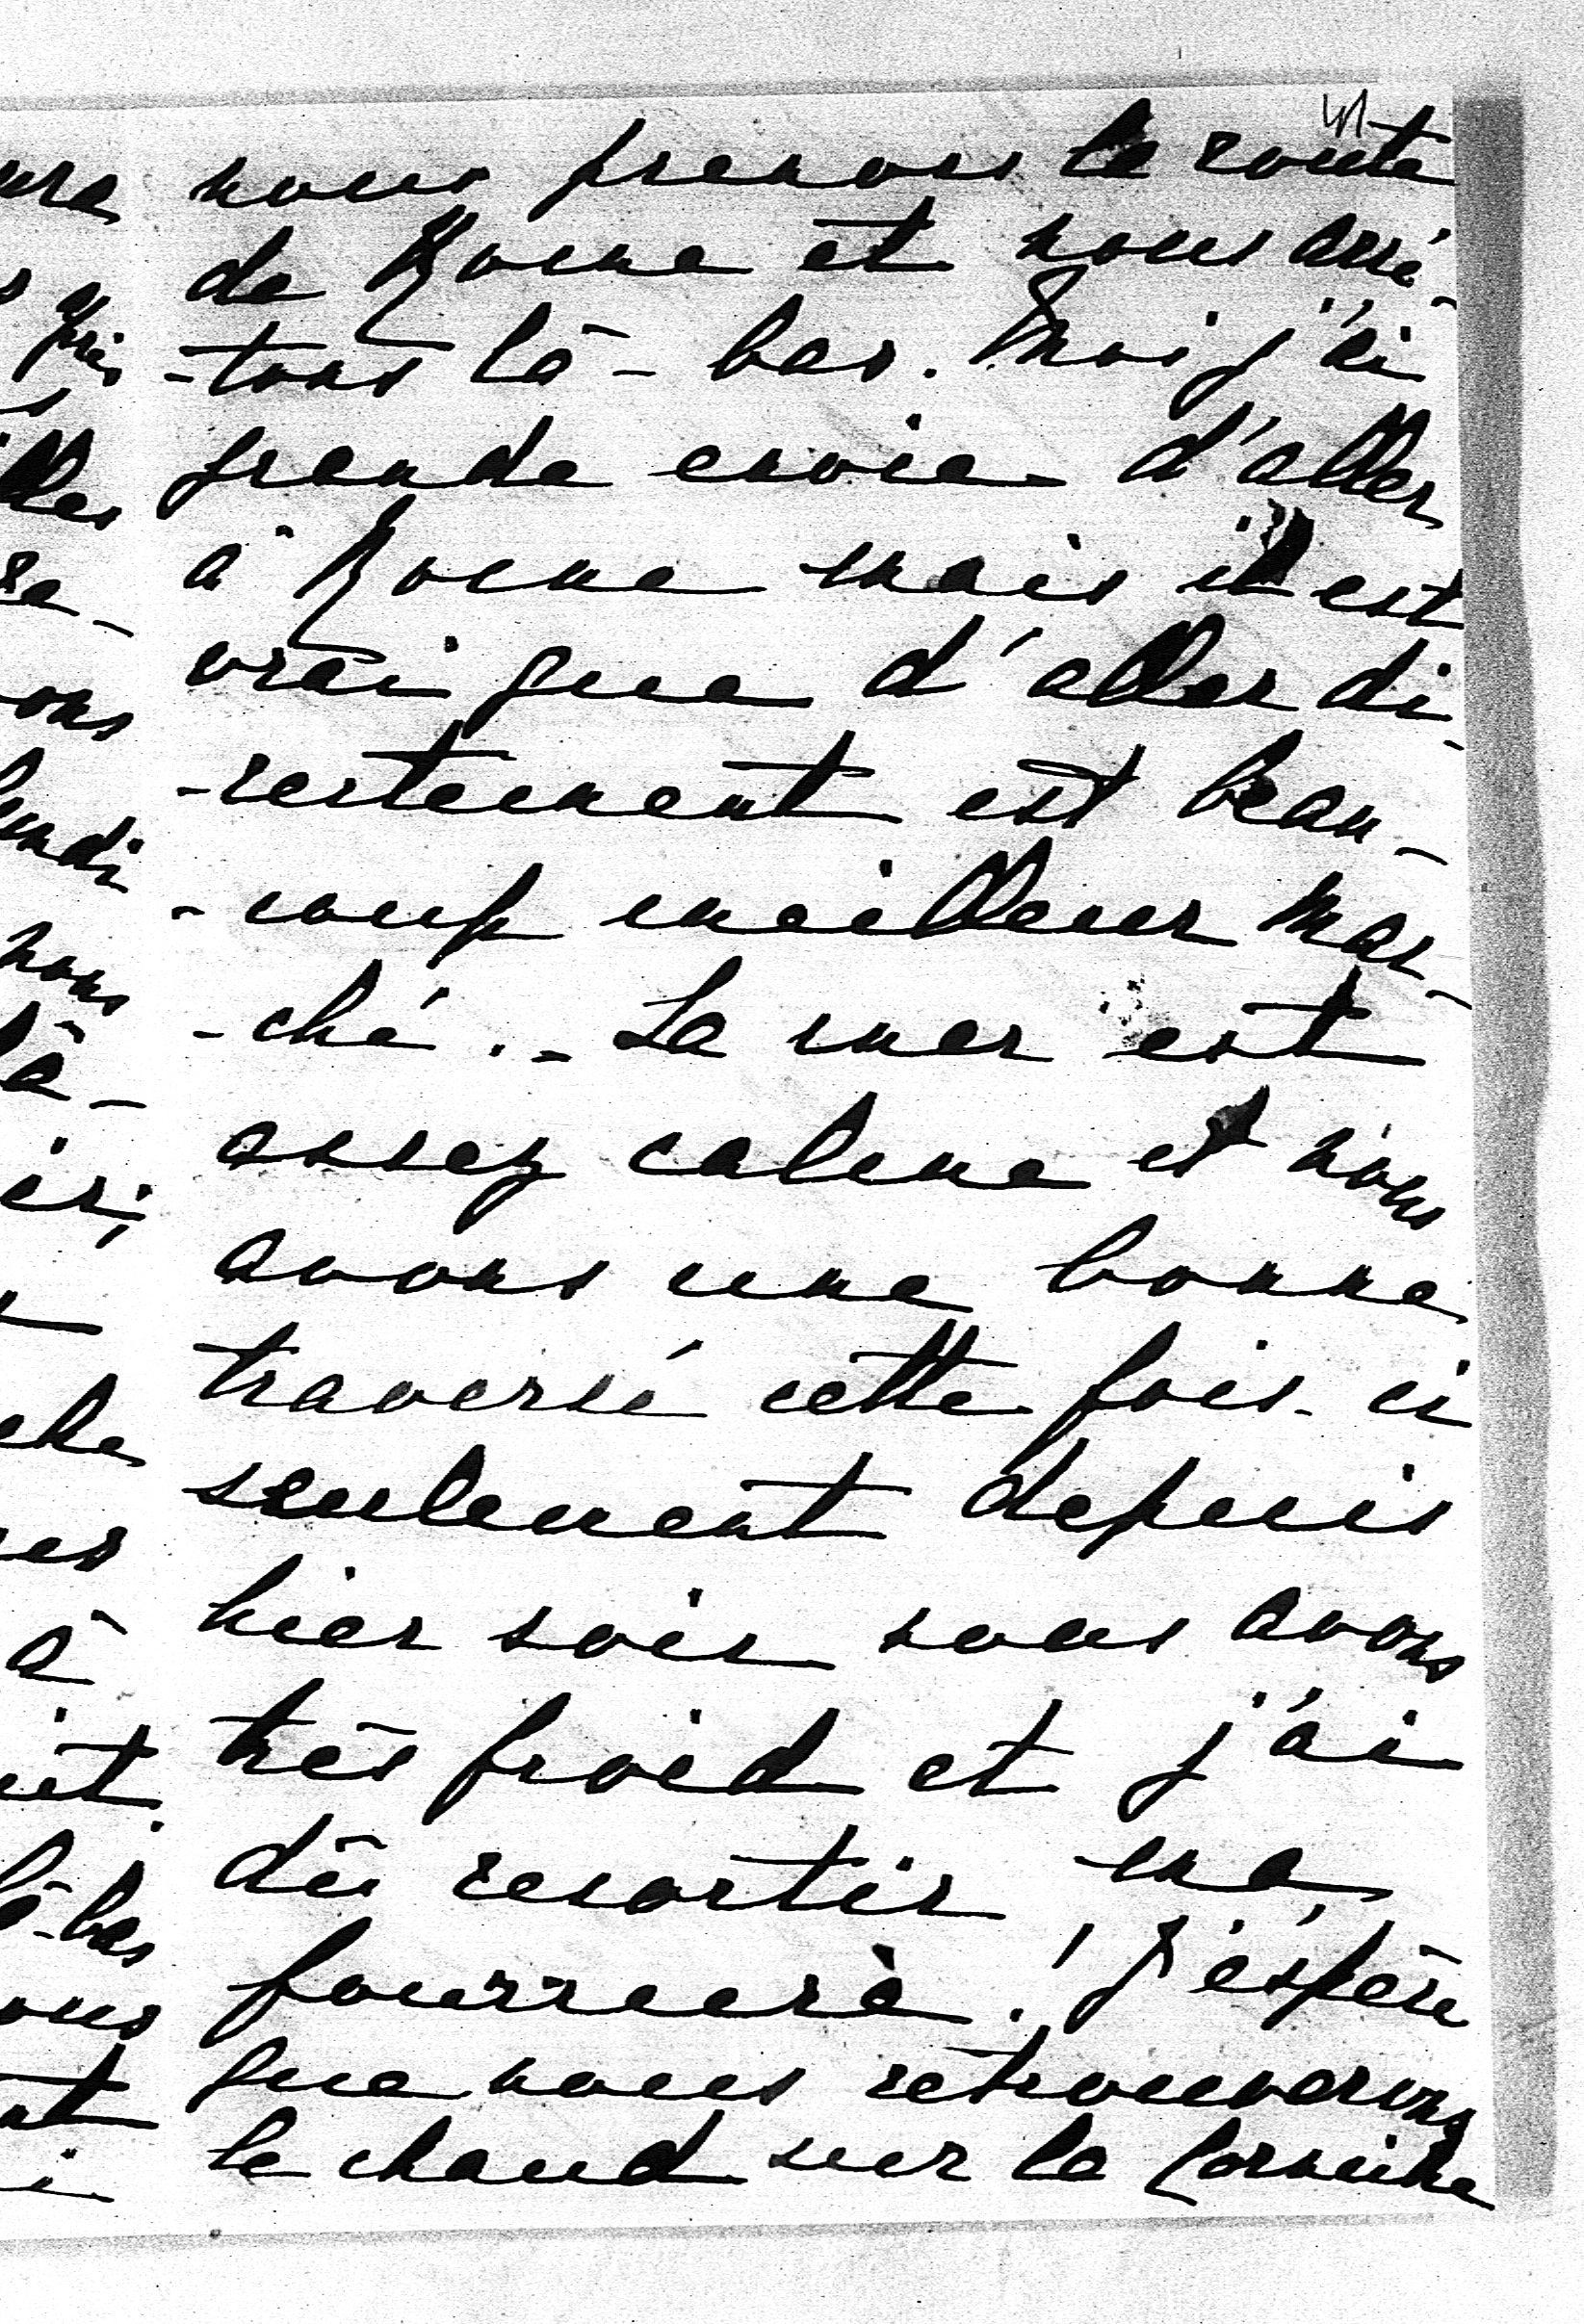 nous prenons la route
de Rome et nous arrê-
-tons là-bas. Moi j'ai
grande envie d'aller
à Rome mais il est
vrai que d'aller di-
-rectement est beau-
-coup meilleur mar-
-ché. - La mer est
assez calme et nous
avons une bonne
traversé cette fois-ci
seulement depuis
hier soir nous avons
très froid et j'ai
dû resortir ma
fourrure! J'espère
que nous retrouverons
le chaud sur la Corniche